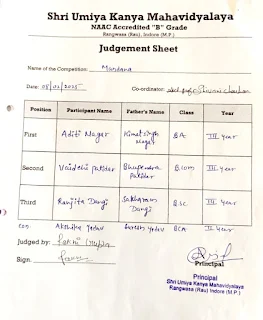 Shri Umiya Kanya Mahavidyalaya
NAAC Accredited "B" Grade
Rangwasa (Rau), Indore (M.P.)
Judgement Sheet
Name of the Competition: Mandana
Date: 2025 Co-ordinator:
Position Participant Name Father's Name Class Year
First Aditi Nagar Kinat singh Nagar BA III year
Second Vaidehi Patidar Bhupendra Patidar B.com III year
Third Ranjita Dangi Sakharam Dangi BSC III year
con Akshita Yadav Suresh Yadav BCA II year
Judged by:
Sign.
Principal
Principal
Shri Umiya Kanya Mahavidyalaya
Rangwasa (Rau) Indore (M.P.)